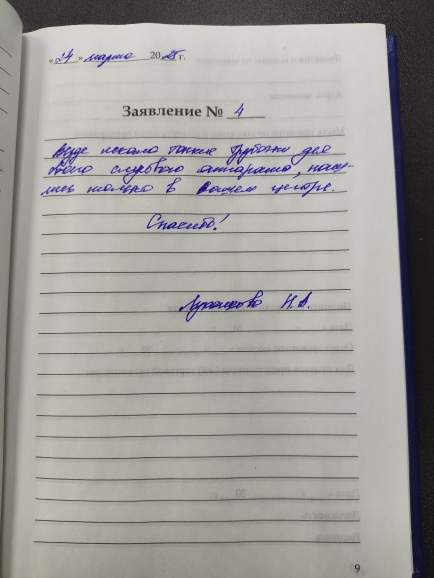 «24» марта 2025 г.
Заявление № 4
Везде искала тонкие трубочки для
своего слухового аппарата, наш-
лись только в Вашем центре.
Спасибо!
Н. А.
9